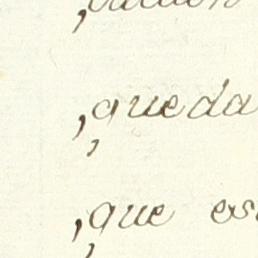 ,,queda
,,que es